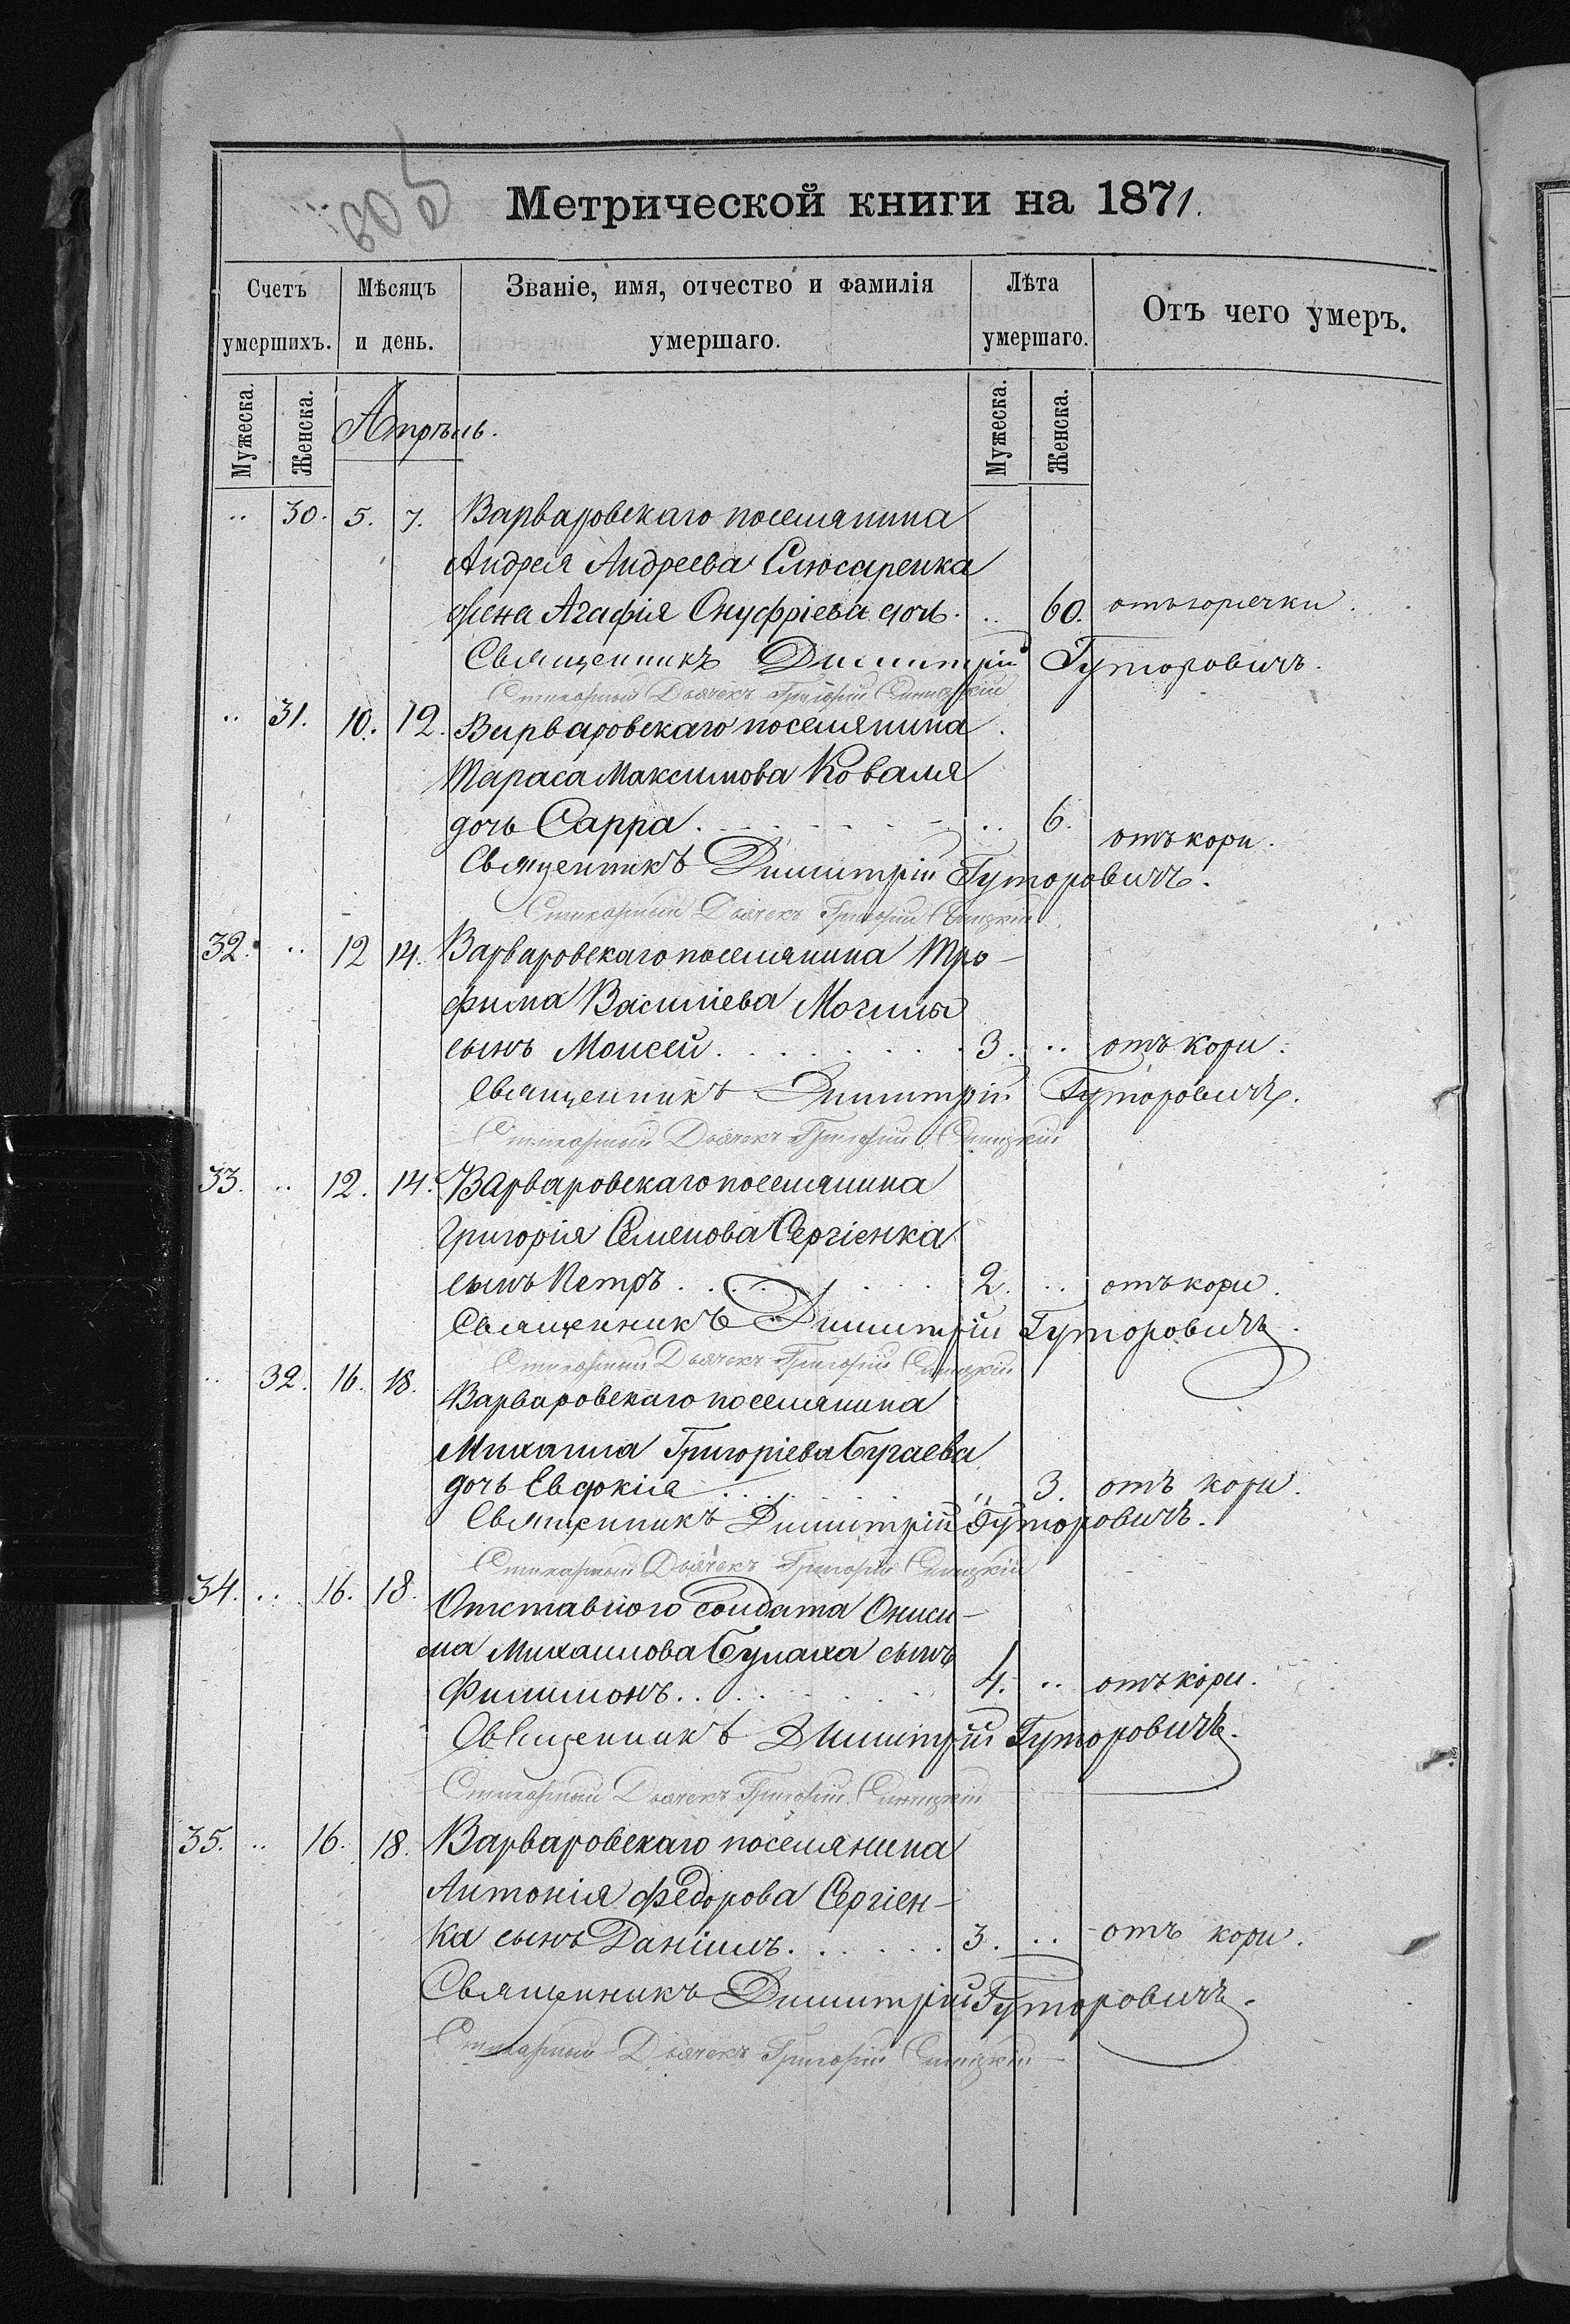 Метрической книги на 1871.
Счетъ умершихъ. Мѣсяцъ и день. Званіе, имя, отчество и фамилія умершаго. Лѣта умершаго. Отъ чего умеръ.
Мужеска. Женска. Апрѣль. Мужеска. Женска.
.. 30. 5. 7. Варваровскаго поселянина
Андрея Андреева Слюсаренка
жена Агафія Онуфріева дочь. .. 60. отъ горячки.
Священникъ Димитрій Гуторовичъ.
Стихарный Дьячекъ Григорій
.. 31. 10. 12. Варваровскаго поселянина
Тараса Максимова Коваля
дочь Сарра. .. 6. отъ кори.
Священникъ Димитрій Гуторовичъ.
Стихарный Дьячекъ Григорій
32. .. 12 14. Варваровскаго поселянина Тро-
фима Василіева Могилы
сынъ Моисей. 3. .. отъ кори.
Священникъ Димитрій Гуторовичъ.
Стихарный Дьячекъ Григорій
33. .. 12. 14. Варваровскаго поселянина
Григорія Семенова Сергіенка
сынъ Петръ. 2. .. отъ кори.
Священникъ Димитрій Гуторовичъ.
Стихарный Дьячекъ Григорій
.. 32. 16. 18. Варваровскаго поселянина
Михаила Григоріева Бугаева
дочь Евдокія .. 3. отъ кори.
Священникъ Димитрій Гуторовичъ.
Стихарный Дьячекъ Григорій
34. .. 16. 18. Отставного солдата Ониси-
ма Михаилова Булаха сынъ
Филимонъ. 4. .. отъ кори.
Священникъ Димитрій Гуторовичъ.
Стихарный Дьячекъ Григорій
35. .. 16. 18. Варваровскаго поселянина
Антонія Федорова Сергіен-
ка сынъ Даніилъ. 3. .. отъ кори.
Священникъ Димитрій Гуторовичъ.
Стихарный Дьячекъ Григорій